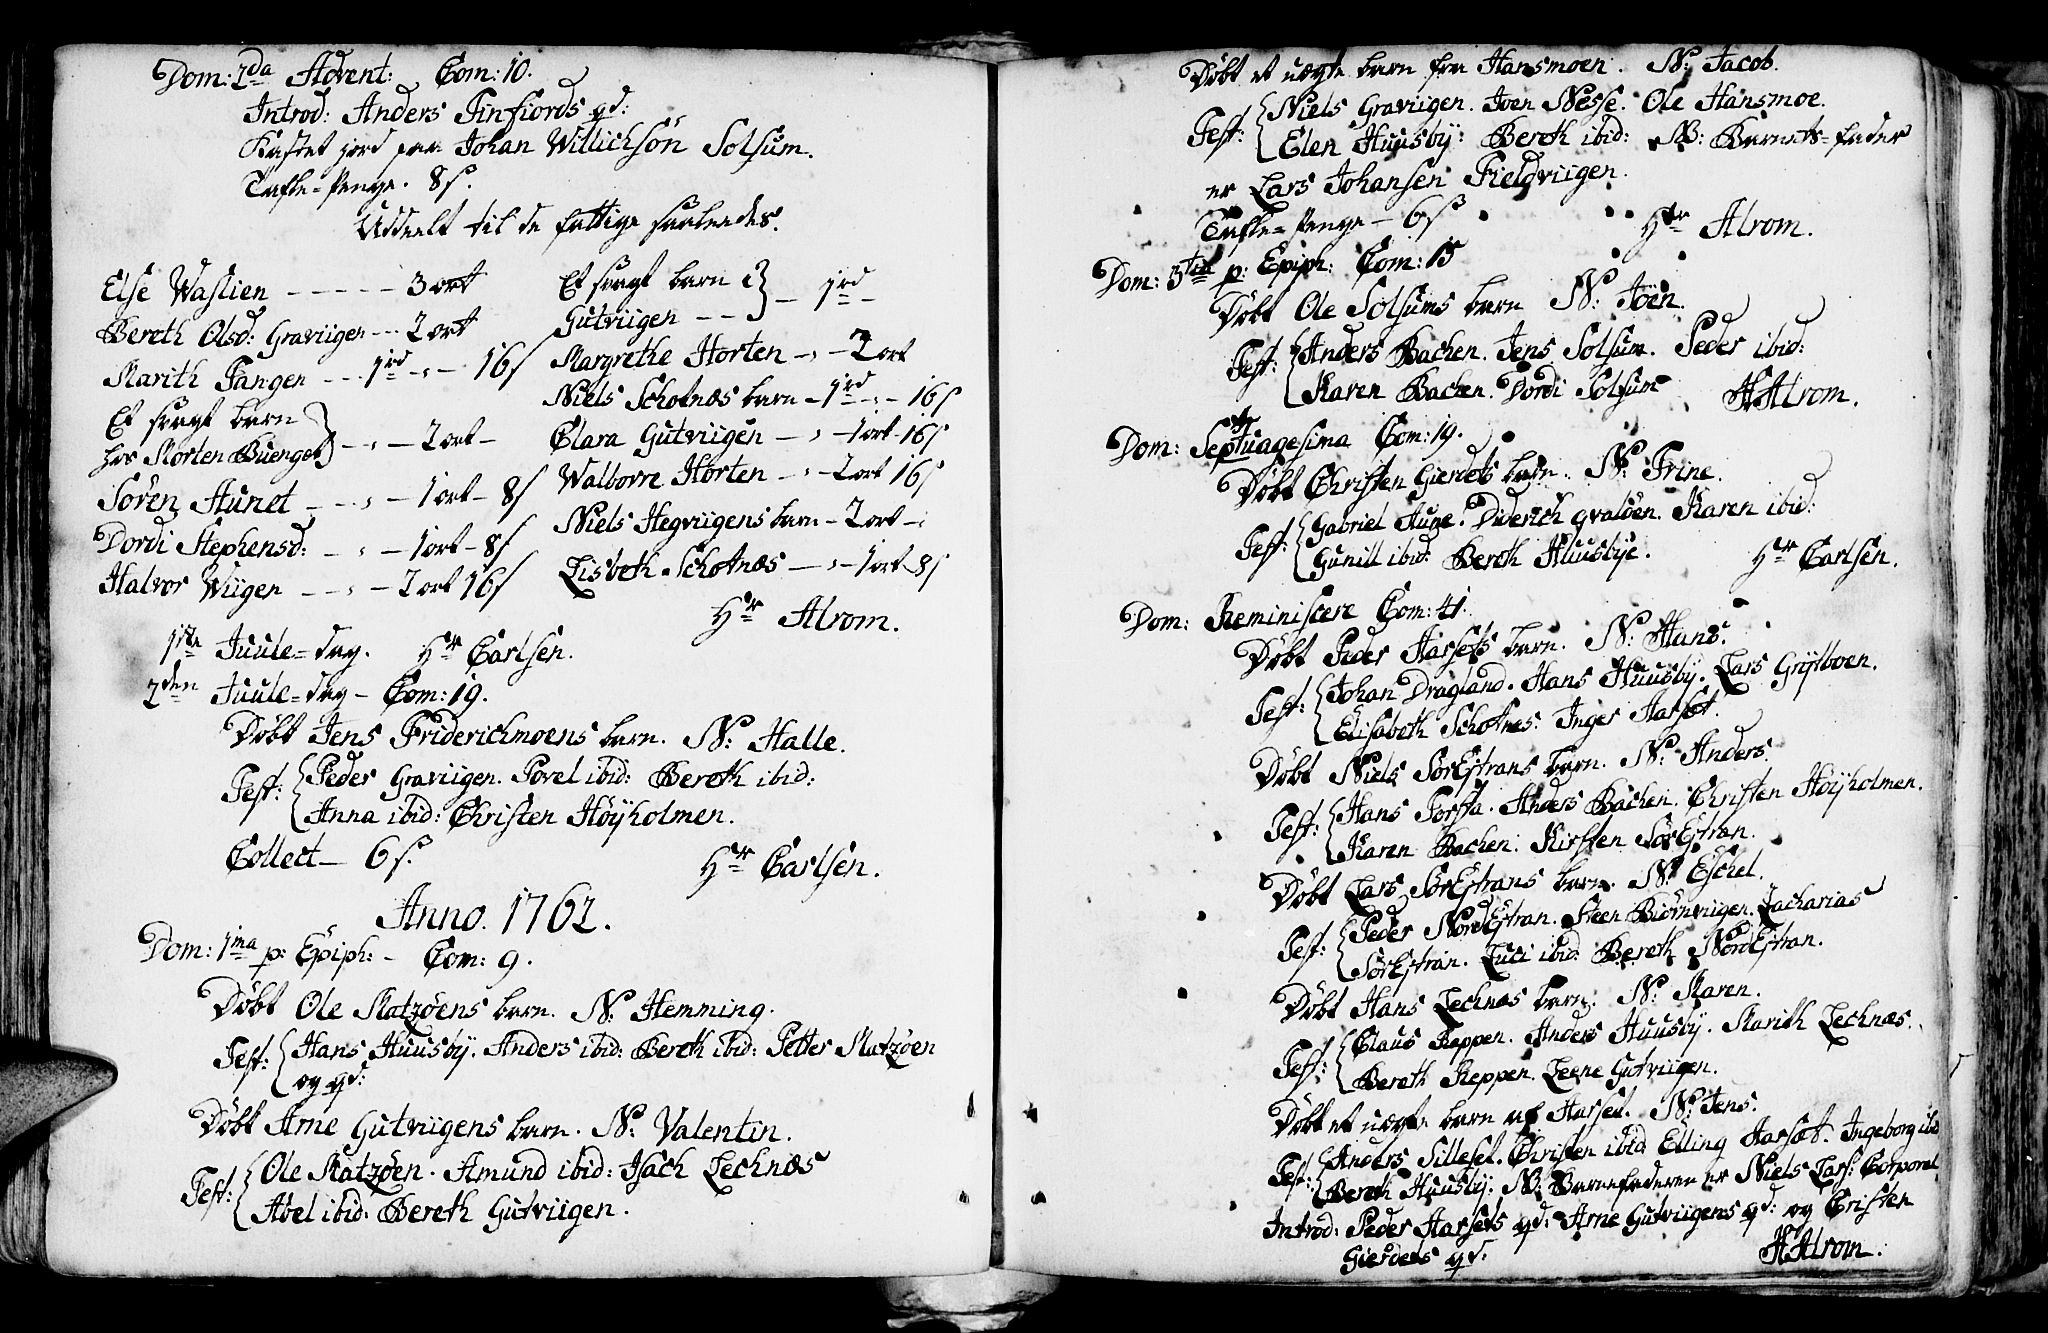 Dom: 2da Advent: Com: 10.
Introd: Anders Finfiords qd:
Kastet jord paa Johan Willichsön Solsum.
Tafle-Penge. 8 s.
Uddeelt til de fattige saaledes.
Else Waslien - - - - - 3 ort
Bereth Olsd: Graviigen - - - 2 ort
Marith Fangen - - - 1 rd - „ - 16 s
Et svagt barn
hos Morten Buenget } - „ - 2 ort -
Sören Aunet - - „ - 1 ort - 8 s
Dordi Stephensd: - „ - 1 ort - 8 s
Halvor Wiigen - - „ - 2 ort 16 s
Et svagt barn i
Gutviigen - - } - 1 rd -
Margrethe Horten - „ - 2 ort
Niels Schotnæs barn - 1 rd - „ - 16 s
Clara Gutviigen - „ - 1 ort - 16 s
Walborre Horten - „ - 2 ort 16 s
Niels Hegviigens barn - 2 ort - „
Lisbeth Schotnæs - „ - 1 ort - 8 s
Hr Alrom.
1ste Juule-dag. Hr Carlsen.
2den Juule-dag - Com: 19.
Döbt Jens Friderichmoens barn. N: Halle.
Test: { Peder Graviigen. Povel ibid: Bereth ibid:
Anna ibid: Christen Höyholmen.
Collect - 6 s.
Hr Carlsen.
Anno. 1762.
Dom: 1ma p: Epiph: - Com: 9.
Döbt Ole Matzöens barn. N: Hemming.
Test: { Hans Huusby. Anders ibid: Bereth ibid: Petter Matzöen
og qd:
Döbt Arne Gutviigens barn. N: Valentin.
Test: { Ole Matzöen. Amund ibid: Isach Lechnæs
Abel ibid: Bereth Gutviigen.
Döbt et uægte barn fra Hansmoen. N: Jacob.
Test: { Niels Graviigen. Joen Nesse. Ole Hansmoe.
Elen Huusby: Bereth ibid: NB: Barnets-fader
er Lars Johansen Fieldviigen.
Tafle-Penge - 6 s
Hr Alrom.
Dom: 3tia p: Epiph: Com: 15
Döbt Ole Solsums barn N: Jöen.
Test: { Anders Bachen. Jens Solsum. Peder ibid:
Karen Bachen. Dordi Solsum
H Alrom.
Dom: Septuagesima Com: 19.
Döbt Christen Gierdets barn. N: Trine.
Test: { Gabriel Aune. Diderich qvalöen. Karen ibid:
Gunill ibid: Bereth Huusbye.
Hr Carlsen.
Dom: Reminiscere Com: 41.
Döbt Peder Harsets barn. N: Hans.
Test: { Johan Dragland. Hans Huusby. Lars Grytboen.
Elisabeth Schotnæs. Inger Harset.
Döbt Niels SörEstrans barn. N: Anders.
Test: { Hans Torsta. Anders Bachen. Christen Höyholmen.
Karen Bachen. Kirsten SörEstran.
Döbt Lars SörEstrans barn. N: Eschel.
Test: { Peder NordEstran. Steen Biörnviigen. Zacharias
SörEstran. Luci ibid: Bereth NordEstran.
Döbt Hans Lechnæs barn. N: Karen.
Test: { Claus Reppen. Anders Huusby. Marith Lechnæs.
Bereth Reppen. Leene Gutviigen.
Döbt et uægte barn af Harset. N: Jens.
Test: { Anders Silleset. Christen ibid Elling Harsæt. Ingeborg ibid
Bereth Huusby. NB: Barnefaderen er Niels Lars: Corporal
Introd: Peder Harsets qd: Arne Gutviigens qd: og Cristen
Gierdets qd.
H Alrom.